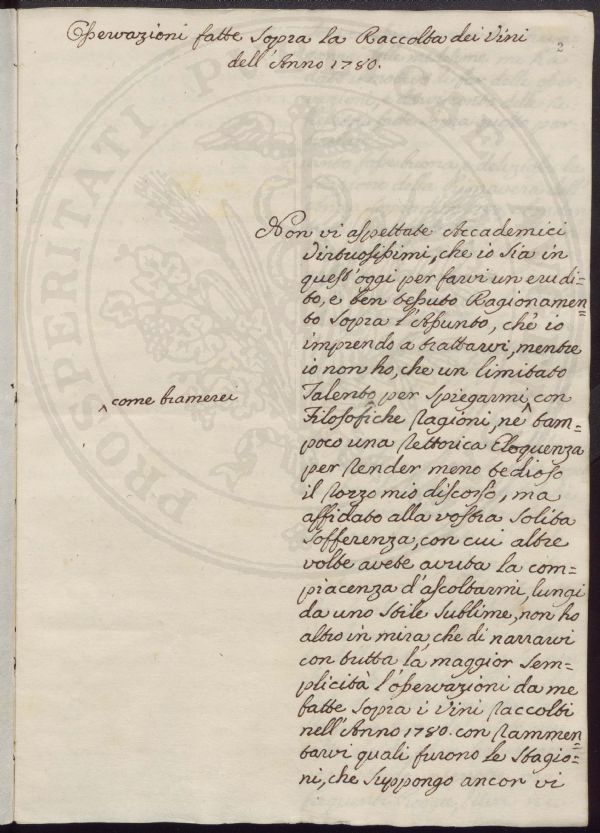 Osservazioni fatte sopra la Raccolta dei Vini
dell'Anno 1780.
2
PROSPERITATI PUBLICAE
Non vi aspettate Accademici
Virtuosissimi, che io sia in
quest'oggi per farvi un erudi=
to, e ben tessuto Ragionamen=
to sopra l'Assunto, che io
imprendo a trattarvi, mentre
io non ho, che un limitato
Talento per spiegarmi con
^ come bramerei
Filosofiche ragioni, ne^ tam=
poco una rettorica Eloquenza
per render meno tedioso
il rozzo mio discorso, ma
affidato alla vostra solita
sofferenza, con cui altre
volte avete avuta la com=
piacenza d'ascoltarmi, lungi
da uno stile sublime, non ho
altro in mira, che di narrarvi
con tutta la maggior sem=
plicità l'osservazioni da me
fatte sopra i Vini raccolti
nell'Anno 1780. con rammen=
tarvi quali furono le stagio=
ni, che suppongo ancor vi